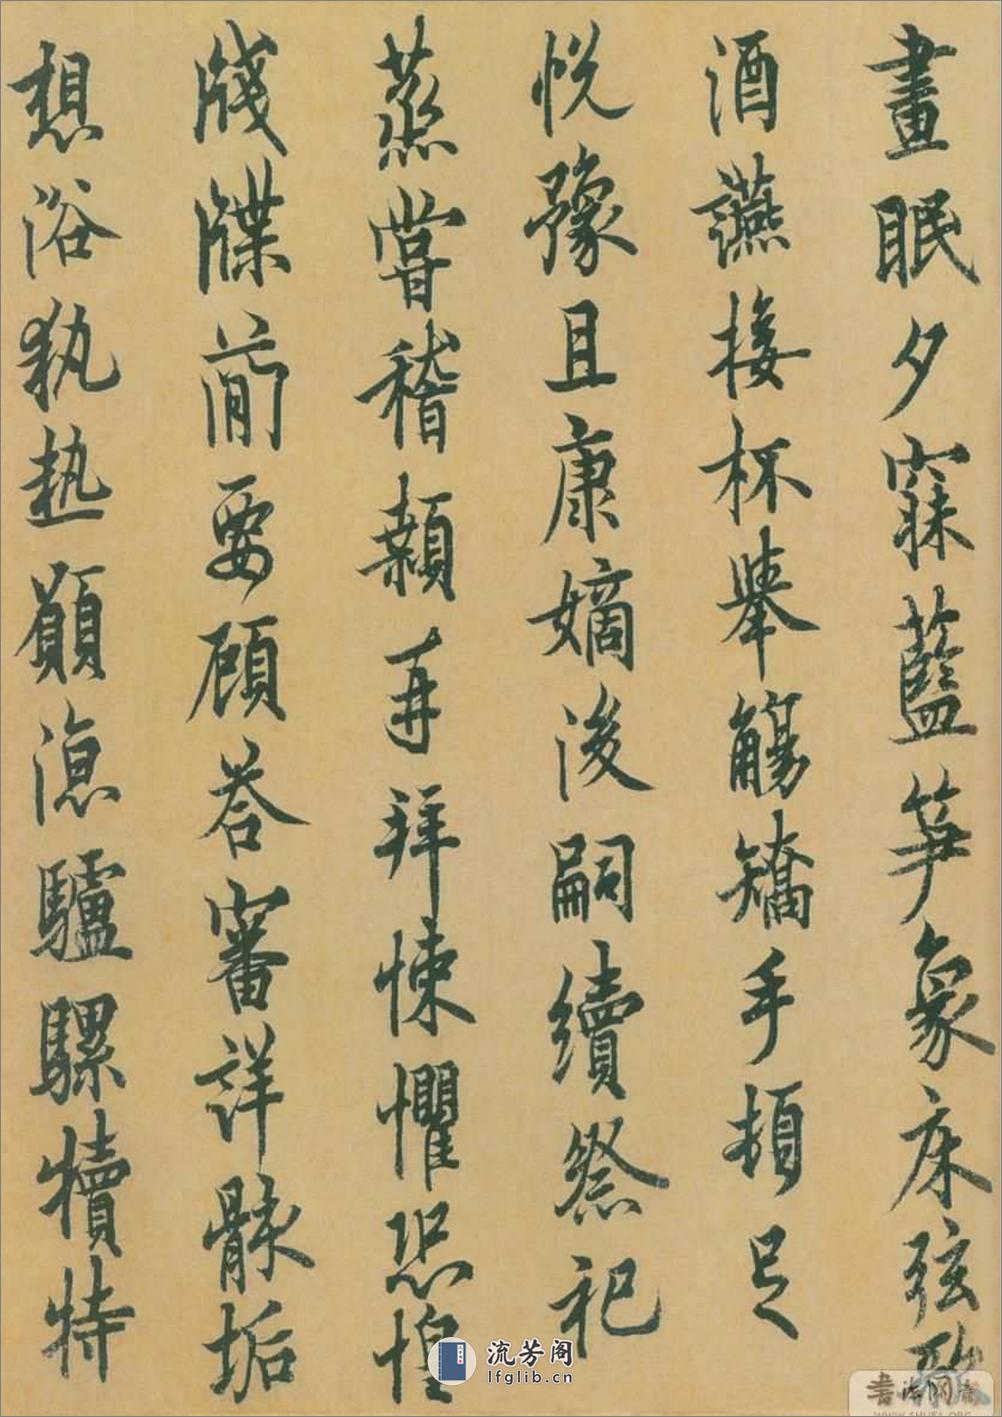 晝眠夕寐藍笋象床弦歌
酒讌接杯舉觴矯手頓足
悅豫且康嫡後嗣續祭祀
蒸嘗稽顙再拜悚懼恐惶
牋牒簡要顧答審詳骸垢
想浴執熱願涼驢騾犢特
流芳阁
lfglib.cn